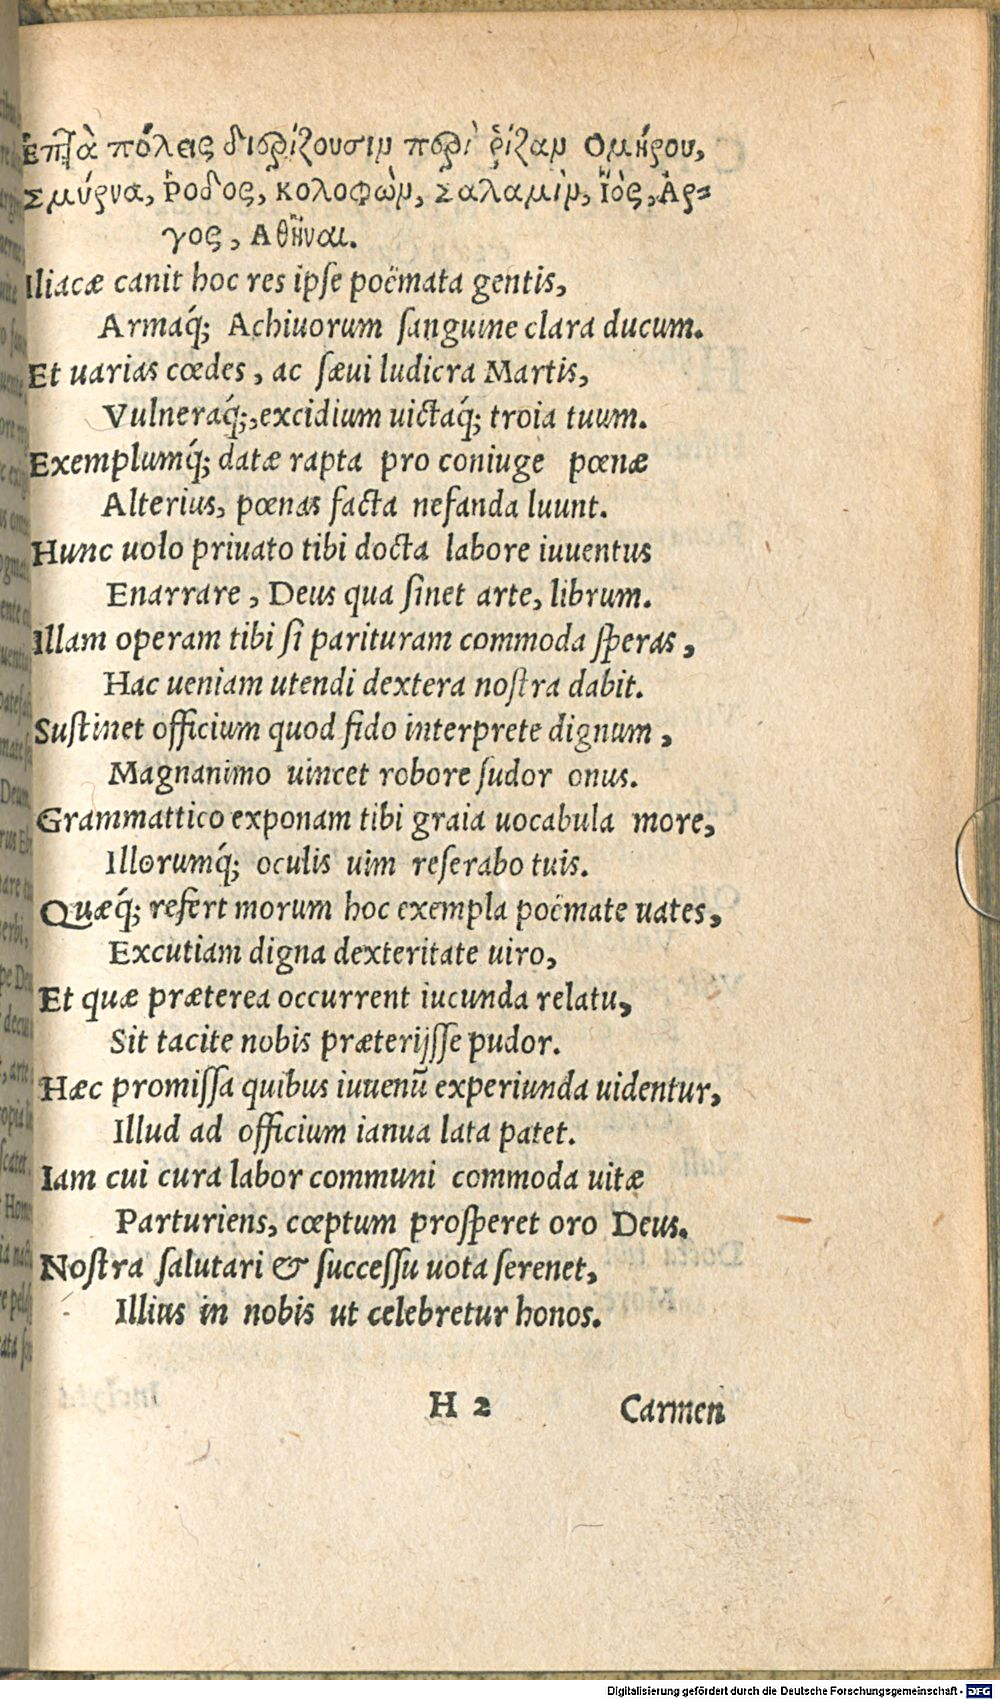 Επτὰ πόλεις διερίζουσιν περὶ ῥίζαν Ομήρου,
Σμύρνα, Ῥοδος, κολοφὼν, Σαλαμὶν, Ἴὸς, Ἀρ-
γος, Αθῆναι.
Iliacæ canit hoc res ipse poëmata gentis,
Armaq́; Achiuorum ſanguine clara ducum.
Et uarias cœdes, ac ſæui ludicra Martis,
Vulneraq́;, excidium uictaq́; troia tuum.
Exemplumq́; datæ rapta pro coniuge pœnæ
Alterius, pœnas facta nefanda luunt.
Hunc uolo priuato tibi docta labore iuuentus
Enarrare, Deus qua ſinet arte, librum.
Illam operam tibi ſi parituram commoda ſperas,
Hac ueniam utendi dextera noſtra dabit.
Suſtinet officium quod fido interprete dignum,
Magnanimo uincet robore ſudor onus.
Grammattico exponam tibi graia uocabula more,
Illorumq́; oculis uim reſerabo tuis.
Quæq́; refert morum hoc exempla poëmate uates,
Excutiam digna dexteritate uiro,
Et quæ præterea occurrent iucunda relatu,
Sit tacite nobis præterijſſe pudor.
Hæc promiſſa quibus iuuenũ experiunda uidentur,
Illud ad officium ianua lata patet.
Iam cui cura labor communi commoda uitæ
Parturiens, cœptum proſperet oro Deus.
Noſtra ſalutari & ſucceſſu uota ſerenet,
Illius in nobis ut celebretur honos.
H 2 Carmen
Digitalisierung gefördert durch die Deutsche Forschungsgemeinschaft - DFG